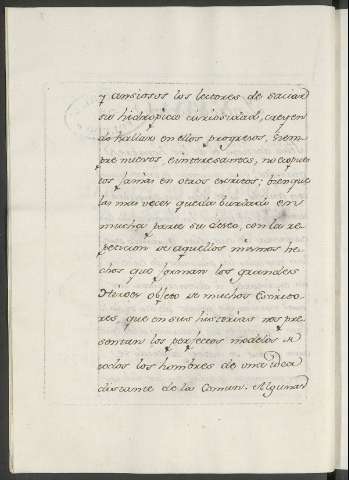 y ansiosos los lectores de saciar
su hidropica curiosidad, creyen
do hallar en ellos progresos, siem
pre nuevos e interesantes, no expues
tos jamas en otros escritos; bien que
las mas veces queda burlado en
mucha parte su deseo, con la re
peticion de aquellos mismos he
chos que forman los grandes
Heroes objeto de muchos Escrito
res, que en sus historias nos pre
sentan los perfectos modelos a
todos los hombres de una idea
distante de la comun. Algunas